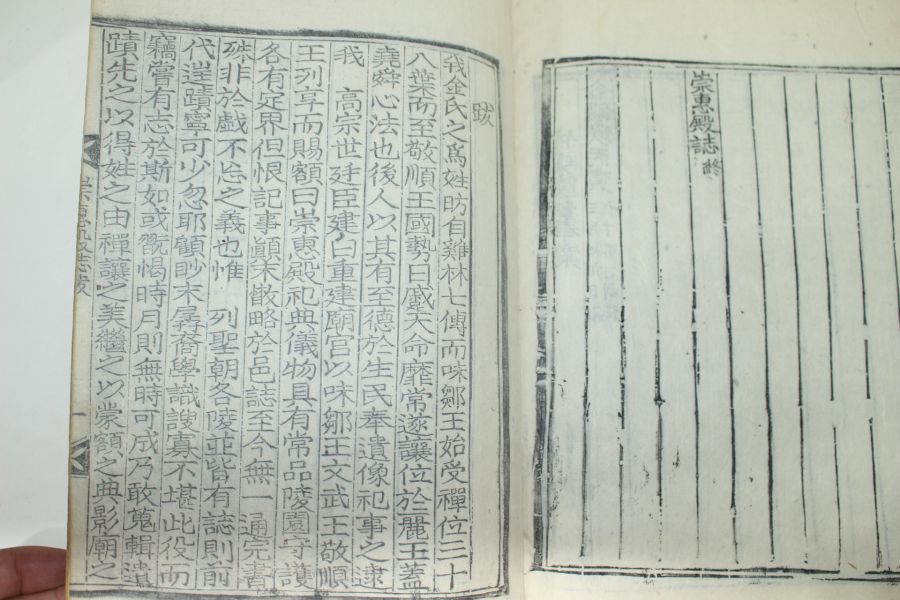 崇惠殿誌 終
跋
我金氏之爲姓昉自雞林七傳而味鄒王始受禪位三十
八葉而至敬順王國勢日蹙天命靡常遂讓位於麗王蓋
堯舜心法也後人以其有至德於生民奉遺像祀事之逮
我 高宗世廷臣建白重建廟宮以味鄒王文武王敬順
王列享而賜額曰崇惠殿祀典儀物具有常品陵園守護
各有定界但恨記事顚末散略於邑誌至今無一通完書
殊非於戲不忘之義也惟 列聖朝各陵並皆有誌則前
代遑蹟寧可少忽耶顧眇末孱裔學識謏寡不堪此役而
竊嘗有志於斯如或翫愒時月則無時可成乃敢蒐輯遺
蹟先之以得姓之由禪讓之美繼之以蒙額之典影廟之
崇惠殿誌跋 一